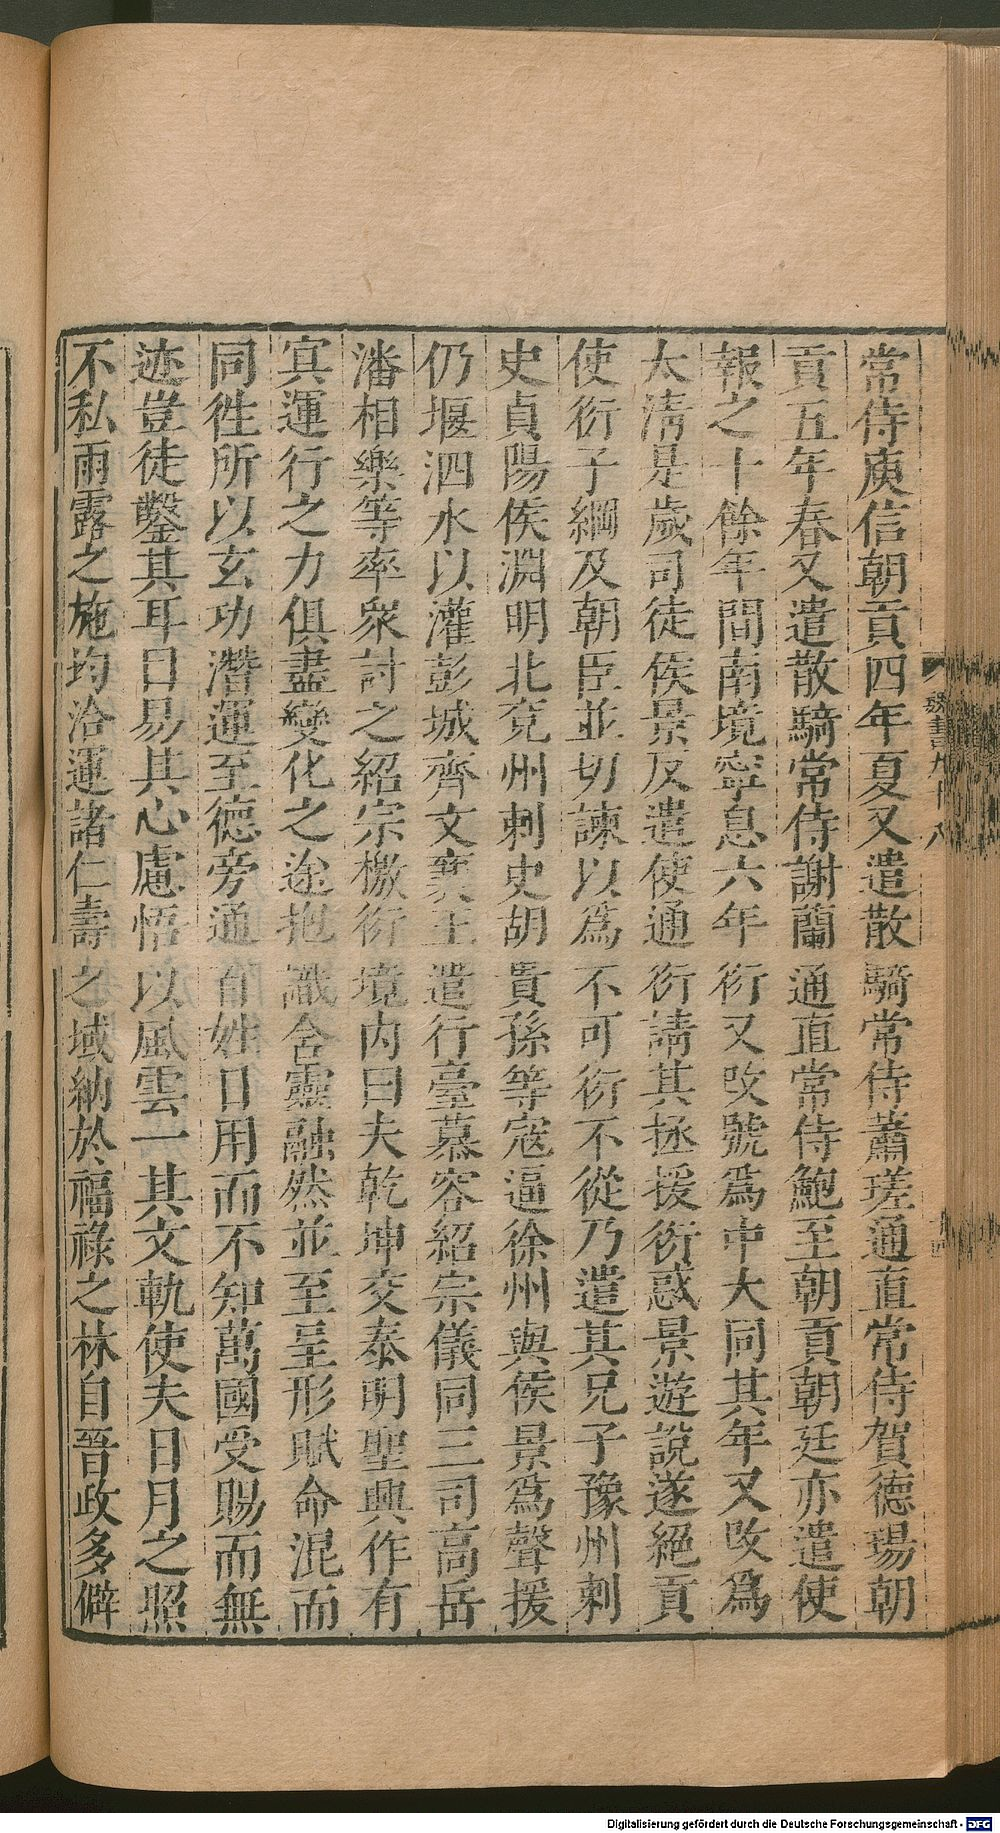 常侍庾信朝貢四年夏又遣散騎常侍蕭瑳通直常侍賀德瑒朝
貢五年春又遣散騎常侍謝蘭通直常侍鮑至朝貢朝廷亦遣使
報之十餘年間南境寧息六年衍又改號爲中大同其年又改爲
太淸是歲司徒侯景反遣使通衍請其拯援衍惑景遊說遂絕貢
使衍子綱及朝臣並切諫以爲不可衍不從乃遣其兄子豫州刺
史貞陽侯淵明北兗州刺史胡貴孫等寇逼徐州與侯景爲聲援
仍堰泗水以灌彭城齊文襄王遣行臺慕容紹宗儀同三司高岳
潘相樂等率衆討之紹宗檄衍境內曰夫乾坤交泰明聖興作有
冥運行之力俱盡變化之途抱識含靈融然並至呈形賦命混而
同徃所以玄功潛運至德旁通百姓日用而不知萬國受賜而無
迹豈徒鑿其耳目易其心慮悟以風雲一其文軌使夫日月之照
不私雨露之施均洽運諸仁壽之域納於福祿之林自晉政多僻
魏書九十八
十四
Digitalisierung gefördert durch die Deutsche Forschungsgemeinschaft - DFG